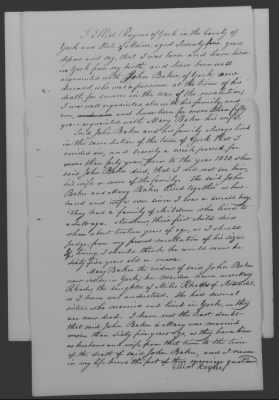 I Elliot Raynes of York in the County of
York and State of Maine, aged seventy five years
depose and say, that I was born and have lived
in York from my birth, and have been well
acquainted with John Baker of York now
deceased, who was a pensioner at the time of his
death for services in the War of the revolution,
I was well acquainted also with his family, and
am, and have been for more than fifty
years acquainted with Mary Baker his wife.
Said John Baker and his family always lived
in the same section of the town of York that I
resided in, and scarcely a week passed for
more than forty years prior to the year 1820, when
said John Baker died, that I did not see him,
his wife or some of the family. The said John
Baker and Mary Baker lived together as hus-
band and wife ever since I was a small boy.
They had a family of children who lived to
adult age. Abraham their first child died
when about twelve years of age, as I should
judge from my present recollection of his size.
If living, I should think he would now be
sixty five years old or more.
Mary Baker the widow of said John Baker
now resides in York, her maiden name was Mary
Rhodes the daughter of Miles Rhodes
as I have understood. She had
sisters who married and lived in York, they
are now dead. I have not the least doubt
that said John Baker & Mary was married
more than sixty five years ago, as they have lived
as husband and wife from that time to the time
of the death of said John Baker, and I never
in my life heard the fact of their marriage questioned.
Elliot Raynes